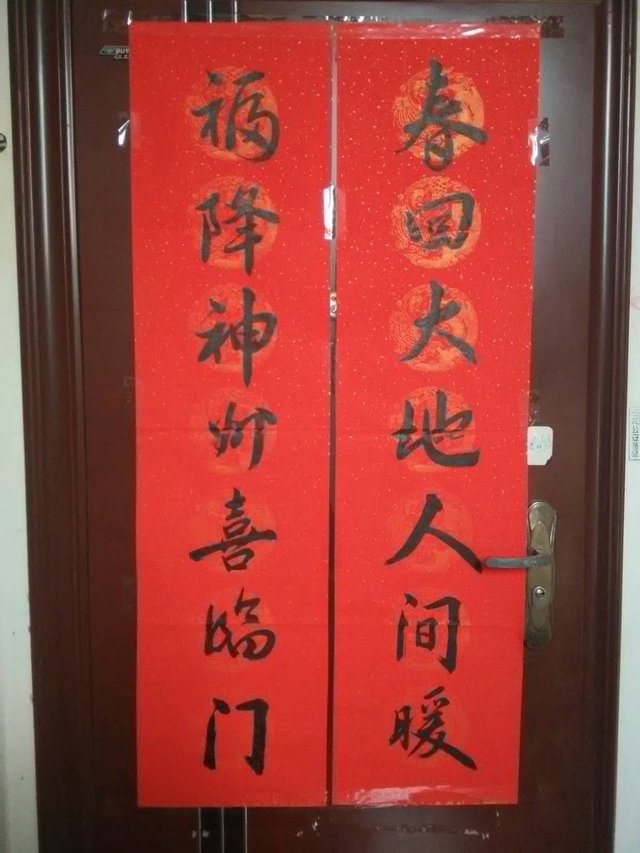 春回大地人间暖
福降神州喜临门